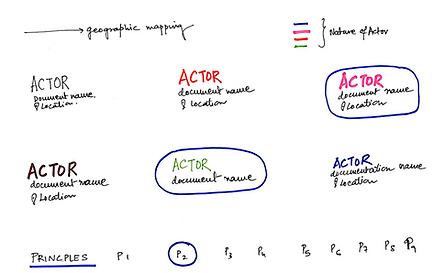 geographic mapping
Nature of Actor
ACTOR
Document name
& location.
ACTOR
document name
& location
ACTOR
document name
& location
ACTOR
document name
& location
ACTOR
document name
ACTOR
documentation name
& location
PRINCPLES P1 P2 P3 P4 P5 P6 P7 P8 P9